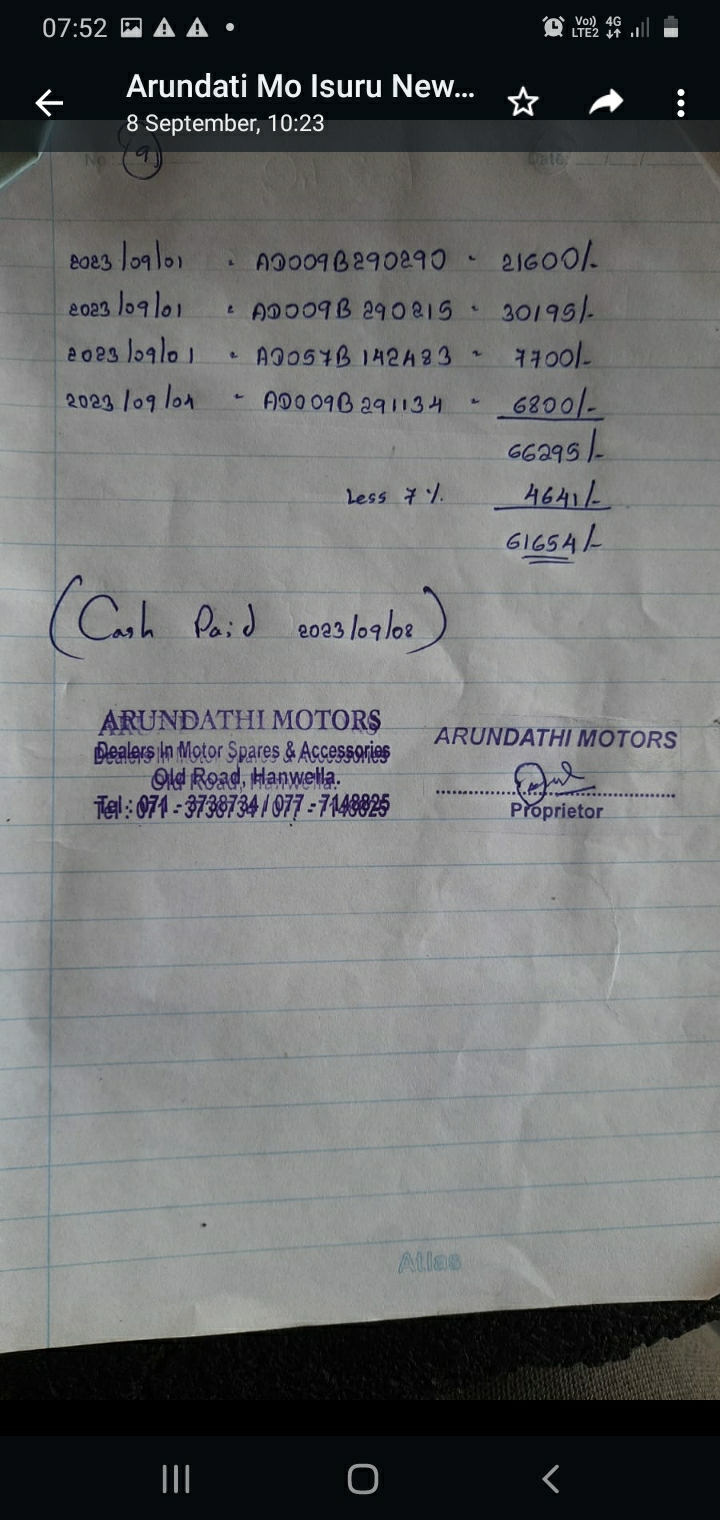 07:52 Vo)) 4G LTE2
Arundati Mo Isuru New...
8 September, 10:23
No 9 Date: / /
2023/09/01 - AD009B290290 - 21600/-
2023/09/01 - AD009B290215 - 30195/-
2023/09/01 - AD057B142483 - 7700/-
2023/09/04 - AD009B291134 - 6800/-
66295/-
Less 7% 4641/-
61654/-
(Cash Paid 2023/09/08)
ARUNDATHI MOTORS
Dealers In Motor Spares & Accessories
Old Road, Hanwella.
Tel : 071 - 3738734 / 077 - 7148825
ARUNDATHI MOTORS
Proprietor
Atlas